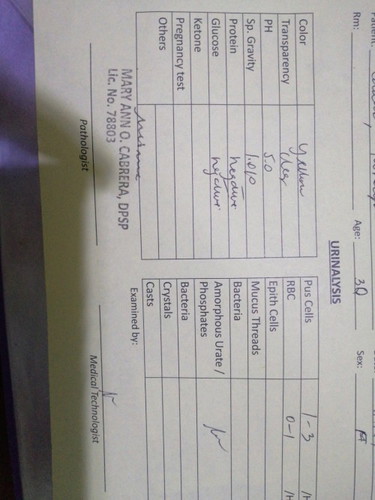 Rm:
Age: 30
Sex:
URINALYSIS
Color Yellow
Transparency
PH 5.0
Sp. Gravity 1.010
Protein negative
Glucose negative
Ketone
Pregnancy test
Others
Pus Cells 1-3
RBC 0-1
Epith Cells
Mucus Threads
Bacteria
Amorphous Urate /
Phosphates
Bacteria
Crystals
Casts
Examined by:
MARY ANN O. CABRERA, DPSP
Lic. No. 78803
Pathologist
Medical Technologist